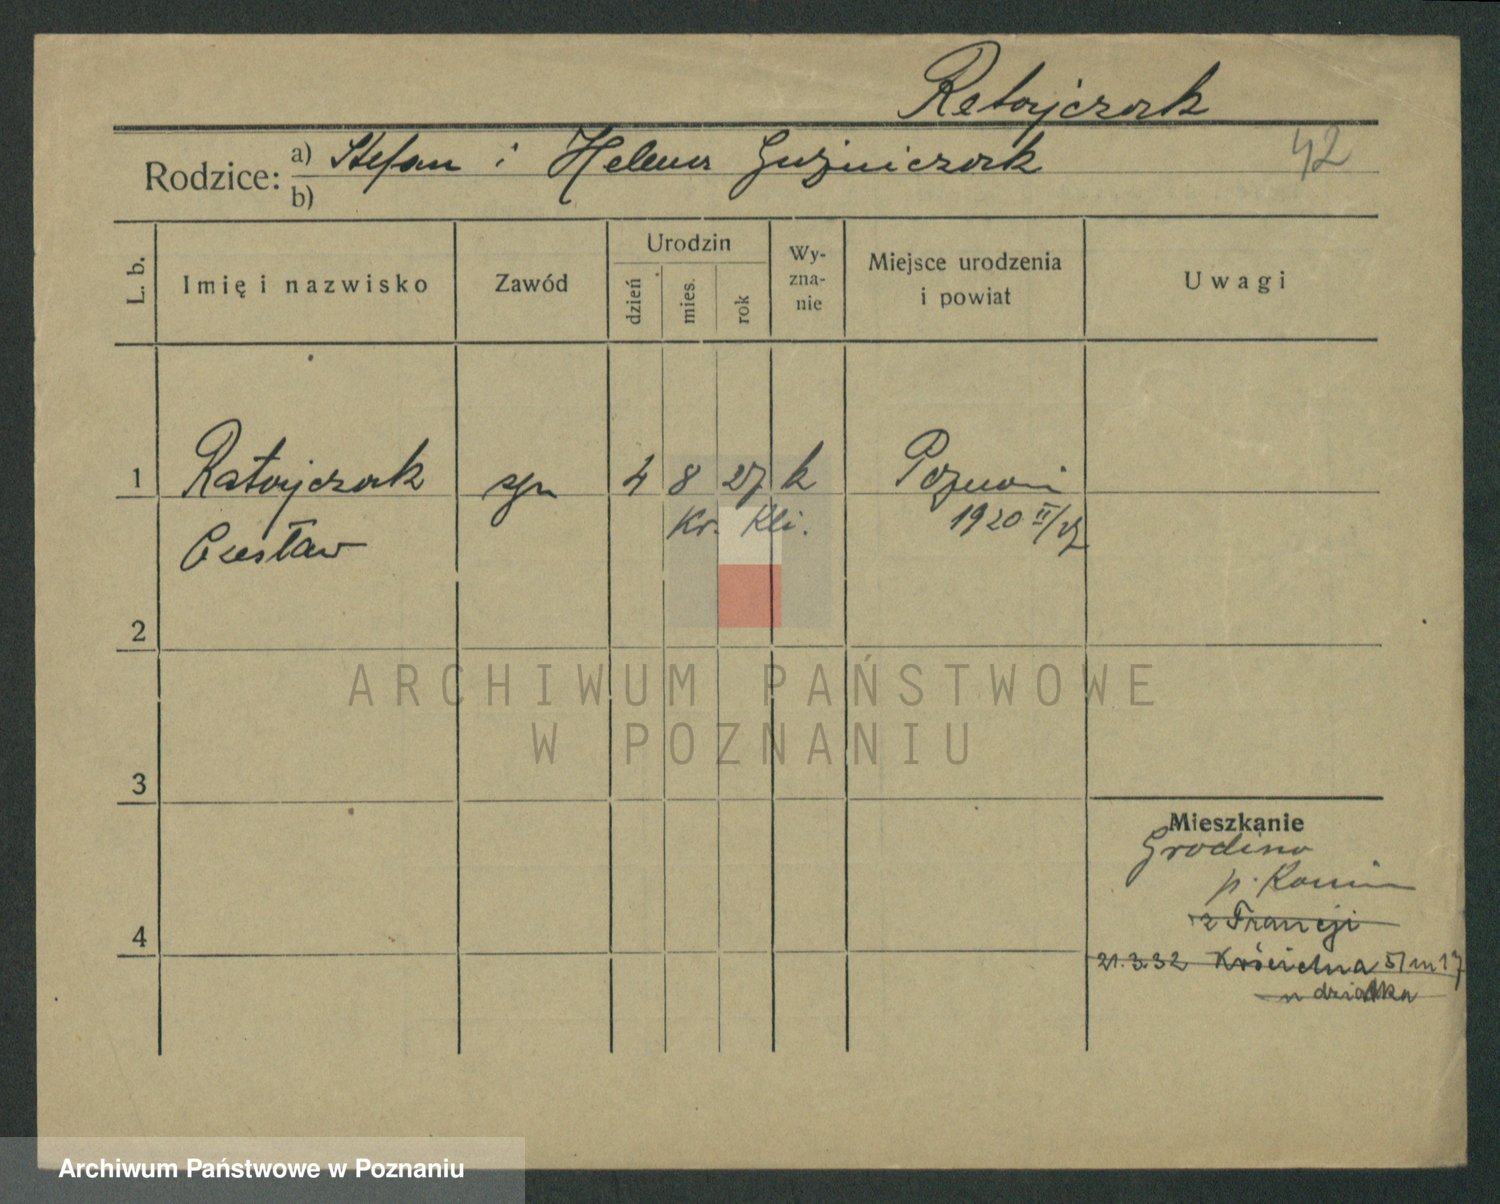 Ratajczak
42
Rodzice: a) Stefan i Helena Guźniczak
b)
L. b.
Imię i nazwisko
Zawód
Urodzin
dzień
mies.
rok
Wy-
zna-
nie
Miejsce urodzenia
i powiat
Uwagi
1 Ratajczak syn 4 8 27 k Poznań
Czesław Kr. Kli. 1920 II/27
2
ARCHIWUM PAŃSTWOWE
W POZNANIU
3
Mieszkanie
Grodzino
p. Konin
z Francji
4
21.3.32 Kościelna 51 m 17
u dziadka
Archiwum Państwowe w Poznaniu